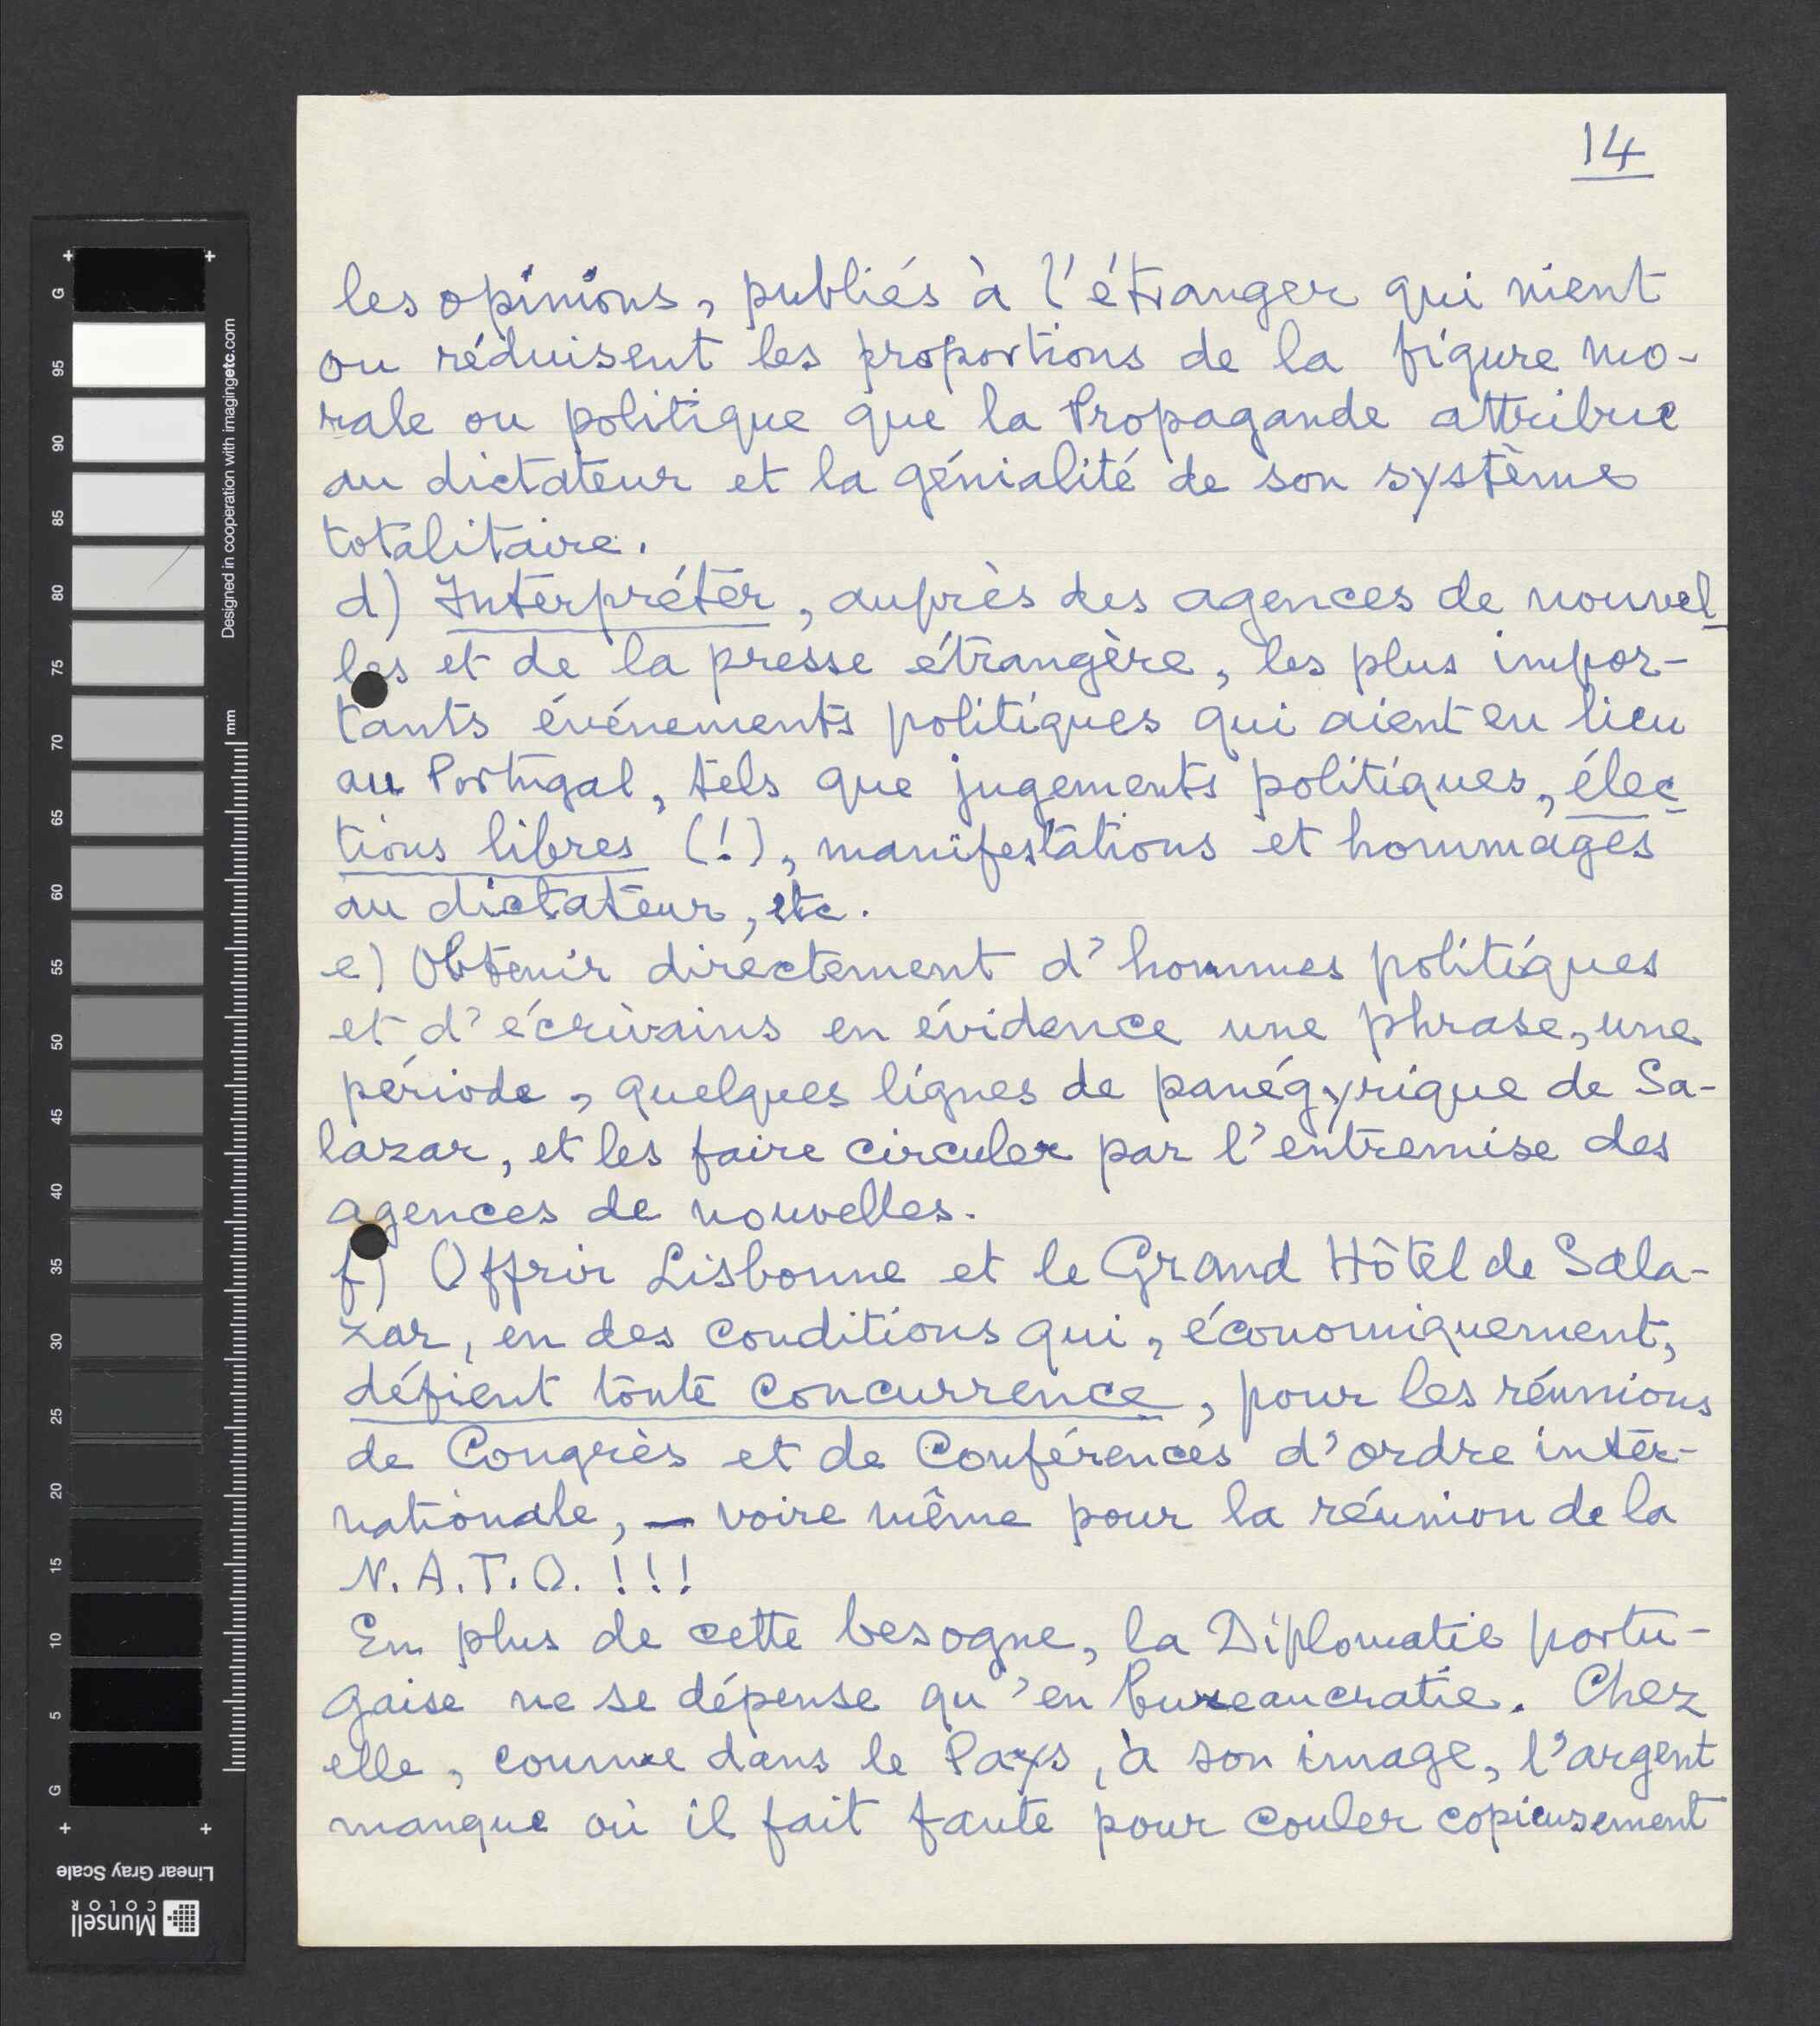 14
les opinions, publiés à l'étranger qui nient
ou réduisent les proportions de la figure mo-
rale ou politique que la Propagande attribue
au dictateur et la génialité de son système
totalitaire.
d) Interpréter, auprès des agences de nouvel-
les et de la presse étrangère, les plus impor-
tants événements politiques qui aient eu lieu
au Portugal, tels que jugements politiques, élec-
tions libres (!), manifestations et hommages
au dictateur, etc.
e) Obtenir directement d'hommes politiques
et d'écrivains en évidence une phrase, une
période, quelques lignes de panégyrique de Sa-
lazar, et les faire circuler par l'entremise des
agences de nouvelles.
f) Offrir Lisbonne et le Grand Hôtel de Sala-
zar, en des conditions qui, économiquement,
défient toute concurrence, pour les réunions
de Congrès et de Conférences d'ordre inter-
nationale, — voire même pour la réunion de la
N.A.T.O. !!!
En plus de cette besogne, la Diplomatie portu-
gaise ne se dépense qu'en bureaucratie. Chez
elle, comme dans le Pays, à son image, l'argent
manque où il fait faute pour couler copieusement
G
95
90
85
80
75
70
65
60
55
50
45
40
35
30
25
20
15
10
5
G
Designed in cooperation with imagingetc.com
mm
Linear Gray Scale
Munsell
COLOR